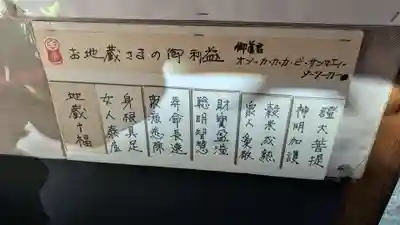 お地蔵さまの御利益
御真言
オン・カ・カ・カ・ビ・サンマエイ・
ソーワーカー
證大菩提
神明加護
穀米成熟
衆人愛敬
財宝盈溢
聡明智慧
寿命長遠
衆病悉除
身根具足
女人泰産
地蔵十福